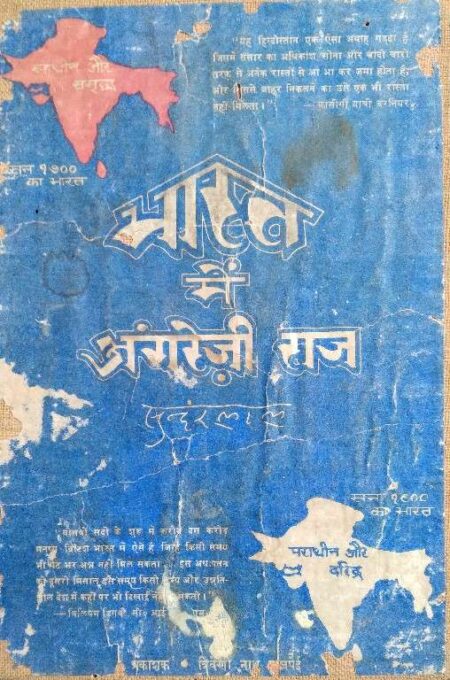 "यह हिन्दोस्तान एक ऐसा अथाह गड्ढा है
जिसमें संसार का अधिकांश सोना और चांदी चारों
तरफ से अनेक रास्तों से आ आ कर जमा होता है,
और जिससे बाहर निकलने का उसे एक भी रास्ता
नहीं मिलता।" —फ्रांसीसी यात्री बरनियर
स्वाधीन और
समृद्ध
सन १७००
का भारत
भारत
में
अंगरेज़ी राज
सुन्दरलाल
सन १९००
का भारत
पराधीन और
दरिद्र
"बीसवीं सदी के शुरू में करीब दस करोड़
मनुष्य ब्रिटिश भारत में ऐसे हैं जिन्हें किसी समय
भी पेट भर अन्न नहीं मिल सकता
इस अधःपतन
की दूसरी मिसाल इस समय किसी सभ्य और उन्नति-
शील देश में कहीं पर भी दिखाई नहीं दे सकती।"
—विलियम डिगबी सी० आई०
प्रकाशक - त्रिवेणी नाथ बाजपेई